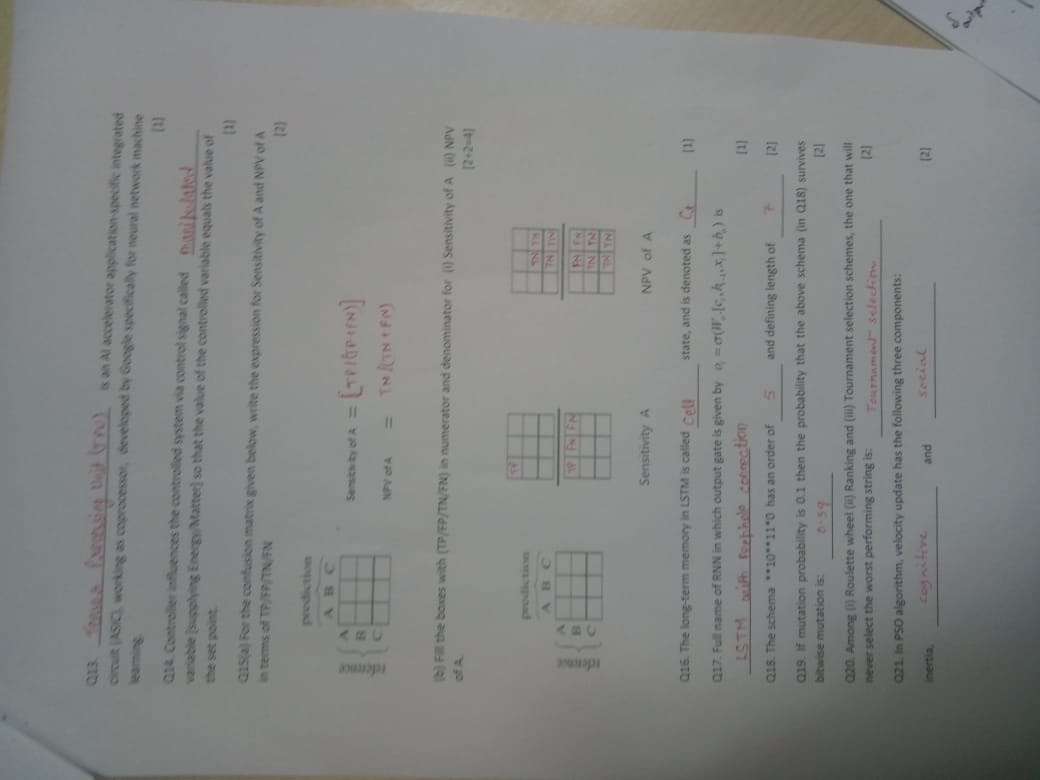 Q13. Tensor Processing Unit (TPU) is an AI accelerator application-specific integrated
circuit (ASIC), working as coprocessor, developed by Google specifically for neural network machine
learning.
[1]
Q14. Controller influences the controlled system via control signal called manipulated
variable [supplying Energy/Matter] so that the value of the controlled variable equals the value of
the set point.
[1]
Q15(a) For the confusion matrix given below, write the expression for Sensitivity of A and NPV of A
in terms of TP/FP/TN/FN
[2]
prediction
A B C
reference
A
B
C
Sensitivity of A = [TP/(TP+FN)]
NPV of A = TN/(TN+FN)
(b) Fill the boxes with (TP/FP/TN/FN) in numerator and denominator for (i) Sensitivity of A (ii) NPV
of A.
[2+2=4]
prediction
A B C
reference
A
B
C
TP
TP FN FN
Sensitivity A
TN TN
TN TN
FN FN
TN TN
TN TN
NPV of A
Q16. The long-term memory in LSTM is called Cell state, and is denoted as Ct [1]
Q17. Full name of RNN in which output gate is given by oₜ = σ(Wₒ.[cₜ, hₜ₋₁, xₜ] + bₒ) is
LSTM with Peephole connection [1]
Q18. The schema **10**11*0 has an order of 5 and defining length of 7 [2]
Q19. If mutation probability is 0.1 then the probability that the above schema (in Q18) survives
bitwise mutation is: 0.59 [2]
Q20. Among (i) Roulette wheel (ii) Ranking and (iii) Tournament selection schemes, the one that will
never select the worst performing string is: Tournament selection [2]
Q21. In PSO algorithm, velocity update has the following three components:
inertia, cognitive and social [2]